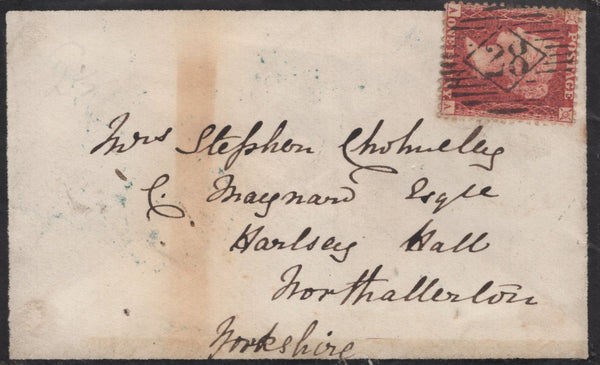 POSTAGE
28
ONE PENNY
Mrs Stephen Cholmeley
C. Maynard Esqre
Harlsey Hall
Northallerton
Yorkshire